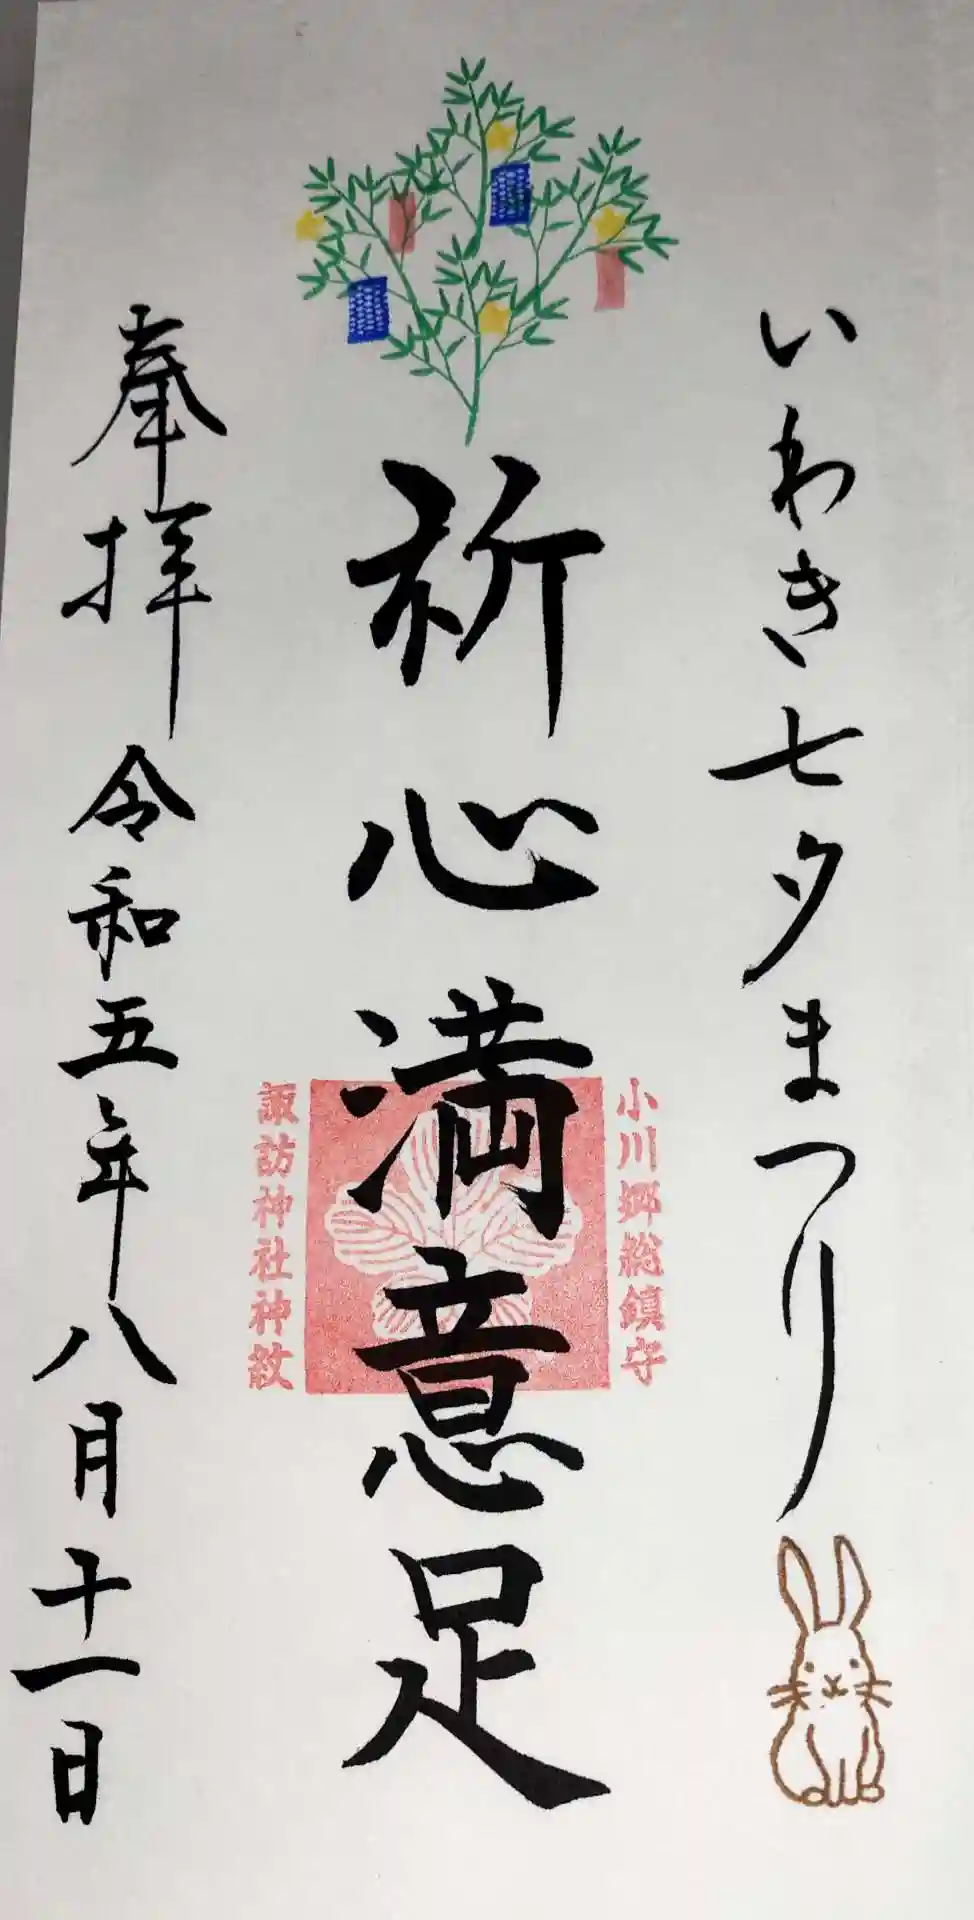 いわき七夕まつり
小川郷総鎮守
祈心満意足
諏訪神社神紋
奉拝 令和五年八月十一日